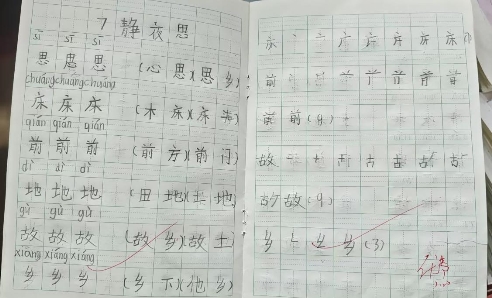 7 静夜思
sī sī sī
思 思 思 (心思)(思乡)
chuáng chuáng chuáng
床 床 床 (木床)(床头)
qián qián qián
前 前 前 (前方)(前门)
dì dì dì
地 地 地 (田地)(土地)
gù gù gù
故 故 故 (故乡)(故土)
xiāng xiāng xiāng
乡 乡 乡 (乡下)(他乡)
床 丶 亠 广 庐 床 床
前 前
前 前 (9)
故 一 十 古 古 故 故
故 故 (9)
乡 乡 乡 (3)